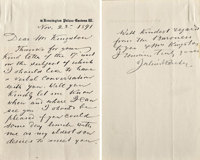 10 Kensington Palace Gardens W.
Nov. 23rd 1891
Dear Mr Kingston
Thanks for your
kind letter of the 21st inst
on the subject of which
I should love to have
a verbal conversation
with you. Will you
kindly let me know
when and where I can
see you. I should be
pleased if you could
some day lunch with
me as my eldest son
desires to meet you
With kindest regards
from the Baroness
to you & Mrs Kingston
I remain Yours